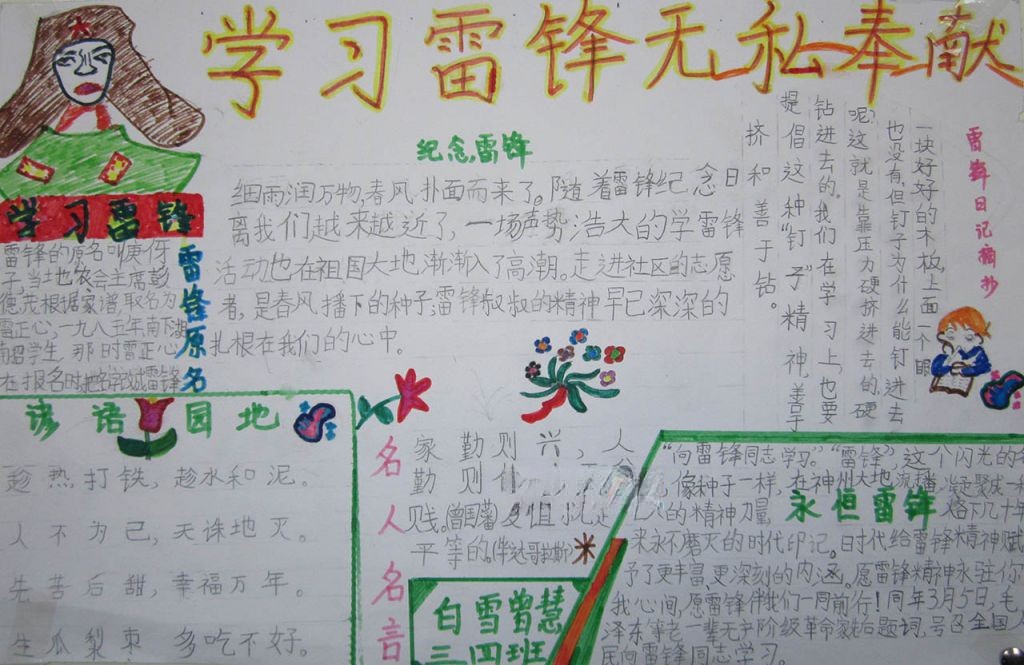 学习雷锋无私奉献
学习雷锋
雷锋原名
雷锋的原名叫庚伢
子,当地农会主席彭
德茂根据家谱,取名为
雷正心,一九八五年南下湖
南招学生,那时雷正心
在报名时把名字改成雷锋
纪念雷锋
细雨润万物,春风扑面而来了。随着雷锋纪念日
离我们越来越近了,一场声势浩大的学雷锋
活动也在祖国大地渐渐入了高潮。走进社区的志愿
者,是春风播下的种子;雷锋叔叔的精神早已深深的
扎根在我们的心中。
雷锋日记摘抄
一块好好的木板,上面一个眼
也没有,但钉子为什么能钉进去
呢?这就是靠压力硬挤进去的,硬
钻进去的。我们在学习上,也要
提倡这种“钉子”精神,善于
挤和善于钻。
谚语园地
趁热打铁,趁水和泥。
人不为己,天诛地灭。
先苦后甜,幸福万年。
生瓜梨枣 多吃不好。
名人名言
家勤则兴,人
勤则
贱。(曾国藩)
平等的。
白雪曾慧
三四班
永恒雷锋
“向雷锋同志学习。”“雷锋”,这个闪光的
,像种子一样,在神州大地流播,
的精神力量,烙下几十年
来永不磨灭的时代印记。时代给雷锋精神赋
予了更丰富、更深刻的内涵。愿雷锋精神永驻你
我心间,愿雷锋伴我们一同前行!同年3月5日,毛
泽东等老一辈无产阶级革命家先后题词,号召全国人
民向雷锋同志学习。